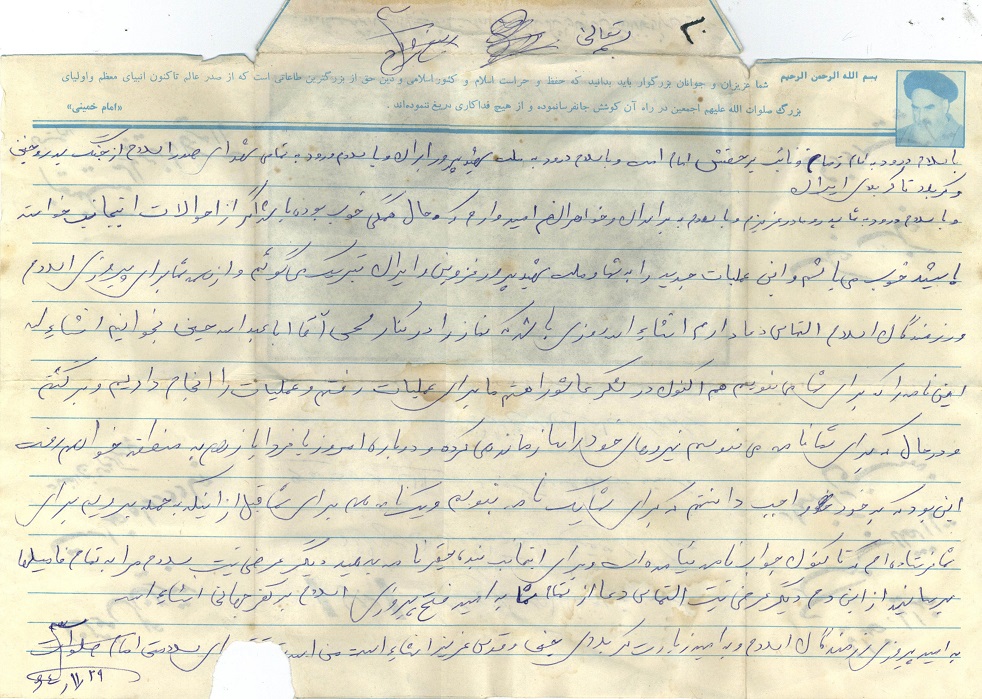 ۳ بتعالی
بسم الله الرحمن الرحیم
شما عزیزان و جوانان بزرگوار باید بدانید که حفظ و حراست اسلام و کشور اسلامی و دین حق از بزرگترین طاعاتی است که از صدر عالم تاکنون انبیای معظم و اولیای
بزرگ صلوات الله علیهم اجمعین در راه آن کوشش جانفرسا نموده و از هیچ فداکاری دریغ ننموده‌اند. «امام خمینی»
با سلام و درود به امام زمان و نائب بر حقش امام امت و با سلام و درود به ملت شهید پرور ایران و با سلام و درود به تمامی شهدای صدر اسلام از جنگ بدر و حنین
و کربلا تا کربلای ایران
و با سلام و درود به شما پدر و مادر عزیزم و با سلام به برادران و خواهرانم امیدوارم که حال همگی خوب بوده باشد اگر از احوالات اینجانب خواسته
باشید خوب می باشم و این عملیات جدید را به شما و ملت شهید پرور قزوین و ایران تبریک می گوئیم و از همه شما برای پیروزی اسلام
و رزمندگان اسلام التماس دعا دارم انشاءالله روزی باشد که نماز را در کنار آقا ابا عبدالله حسین بخوانیم انشاءالله
این نامه را که برای شما می نویسم هم اکنون در لشگر عاشورا هستم ما برای عملیات رفتیم و عملیات را انجام دادیم و برگشتیم
و در حال که برای شما نامه می نویسم نیروهای خود را سازماندهی کرده و دوباره امروز یا فردا باز هم به منطقه خواهیم رفت
این بود که به خود واجب دانستم که برای شما یک نامه بنویسم و یک نامه هم برای شما قبل از اینکه به حمله برویم برای
شما فرستاده ام که تا کنون جواب نامه نیامده است و برای اینجانب بنده حقیر نامه بدهید دیگر عرضی نیست سلام مرا به تمام فامیلها
برسانید از این دم دیگر عرضی نیست التماس دعا از تمام شما به امید فتح پیروزی اسلام بر کفر جهانی انشاءالله
به امید پیروزی رزمندگان اسلام و به امید زیارت کربلای حسین و قدس عزیز انشاءالله برای سلامتی امام صلوات
۶۴/۱۱/۲۹